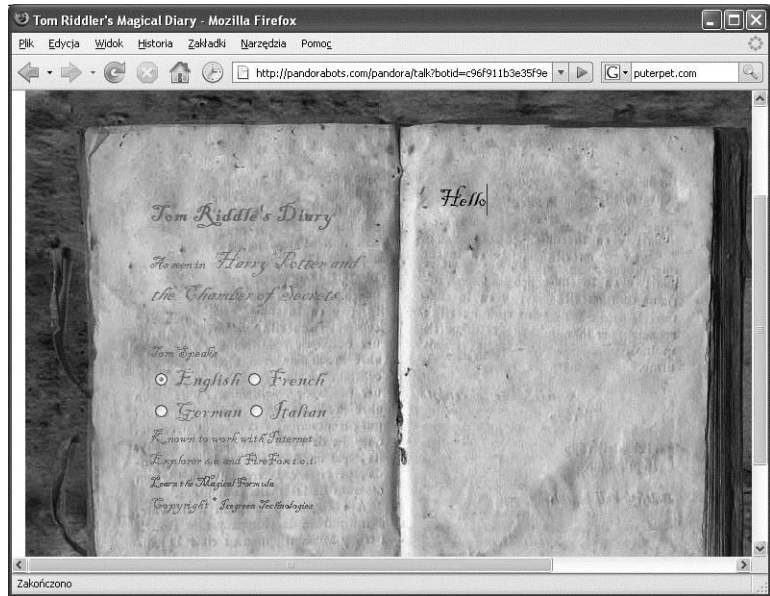 Tom Riddler's Magical Diary - Mozilla Firefox
Plik Edycja Widok Historia Zakładki Narzędzia Pomoc
http://pandorabots.com/pandora/talk?botid=c96f911b3e35f9e G puterpet.com
Hello
Tom Riddle's Diary
As seen in Harry Potter and
the Chamber of Secrets
Tom Speaks
English French
German Italian
Known to work with Internet
Explorer 6.0 and FireFox 1.0.1.
Learn the Magical Formula
Copyright © Icegreen Technologies
Zakończono